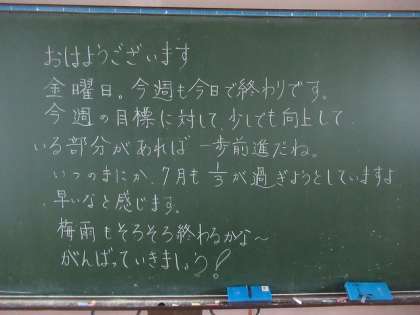 おはようございます
金曜日。今週も今日で終わりです。
今週の目標に対して、少しでも向上して
いる部分があれば一歩前進だね。
いつのまにか、7月も1/3が過ぎようとしていますよ
早いなと感じます。
梅雨もそろそろ終わるかな〜
がんばっていきましょう!